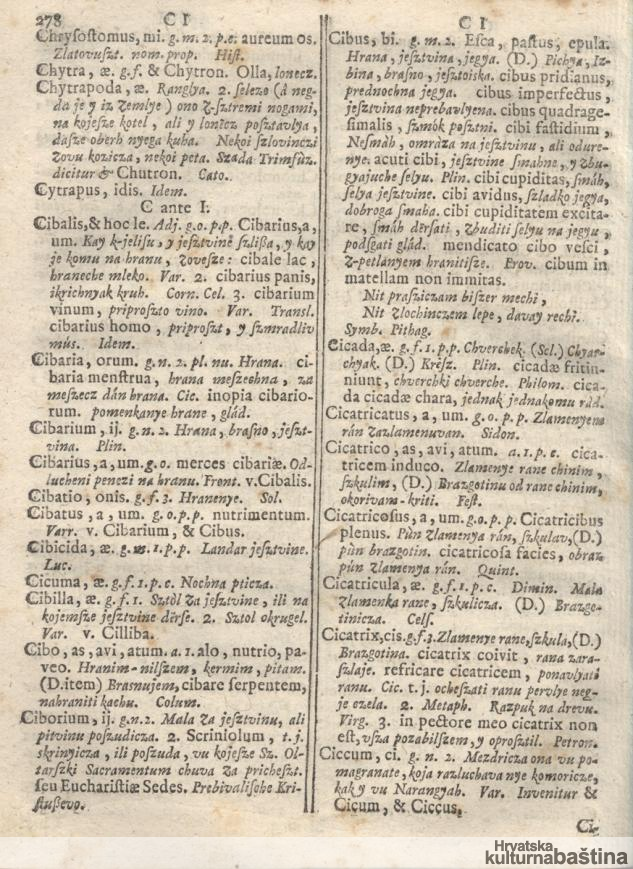 278 C I
Chrysoſtomus, mi. g. m. 2. p. c. aureum os.
Zlatovuſzt. nom. prop. Hiſt.
Chytra, æ. g. f. & Chytron. Olla, lonecz.
Chytrapoda, æ. Ranglya. 2. ſelezo (à neg-
da je y iz Zemlye) ono Z-ſztremi nogami,
na kojeſze kotel, ali y lonècz poſztavlya,
daſze oberh nyega kuha. Nekoi ſzlovinczi
Zovu kozicza, nekoi peta. Szada Trimſùz.
dicitur & Chutron. Cato.
Cytrapus, idis. Idem.
C ante I.
Cibalis, & hoc le. Adj. g. o. p. p. Cibarius, a,
um. Kay k-jeliſu, y jeſztvinè szliſſa, y kay
je komu na hranu, Zoveſze: cibale lac,
hraneche mleko. Var. 2. cibarius panis,
ikrichnyak kruh. Corn. Cel. 3. cibarium
vinum, priproſzto vino. Var. Transl.
cibarius homo, priproſzt, y ſzmradliv
mús. Idem.
Cibaria, orum. g. n. 2. pl. nu. Hrana. ci-
baria menſtrua, hrana meſzechna, za
meſzecz dán brana. Cic. inopia cibario-
rum. pomenkanye hrane, glád.
Cibarium, ij. g. n. 2. Hrana, braſno, jeſzt-
vina. Plin.
Cibarius, a, um. g. o. merces cibariæ. Od-
lucheni penezi na hranu. Front. v. Cibalis.
Cibatio, onis. g. f. 3. Hranenye. Sol.
Cibatus, a, um. g. o. p. p. nutrimentum.
Varr. v. Cibarium, & Cibus.
Cibicida, æ. g. m. 1. p. p. Landar jeſztvine.
Luc.
Cicuma, æ. g. f. 1. p. c. Nochna pticza.
Cibilla, æ. g. f. 1. Sztòl Za jeſztvine, ili na
kojemſze jeſztvine dèrſe. 2. Sztol okrugel.
Var. v. Cilliba.
Cibo, as, avi, atum. a. 1. alo, nutrio, pa-
veo. Hranim-nilſzem, kermim, pitam.
(D. item) Brasnujem, cibare ſerpentem,
nahraniti kachu. Colum.
Ciborium, ij. g. n. 2. Mala Za jeſztvinu, ali
pitvinu poszudicza. 2. Scriniolum, t. j.
skrinyicza, ili poszuda, vu kojeſze Sz. Ol-
tarſzki Sacramentum chuva Za pricheſzt.
ſeu Euchariſtiæ Sedes. Prebivaliſche Kri-
ſtuſſevo.
C I
Cibus, bi. g. m. 2. Eſca, paſtus, epula.
Hrana, jeſztvina, jegya. (D.) Pichya, Iz-
bina, braſno, jeſztoiska. cibus pridianus,
prednochna jegya. cibus imperfectus,
jeſztvina neprebavlyena. cibus quadrage-
ſimalis, ſzmók poſztni. cibi faſtidium,
Neſmáh, omráza na jeſztvinu, ali odure-
nye. acuti cibi, jeſztvine ſmahne, y Zbu-
gyajuche ſelyu. Plin. cibi cupiditas, ſmáh,
ſelya jeſztvine. cibi avidus, ſzladko jegya,
dobroga ſmaha. cibi cupiditatem excita-
re, ſmáh dèrſati, Zbuditi ſelyu na jegyu,
podſgati glád. mendicato cibo veſci,
Z-petlanyem hranitiſze. Prov. cibum in
matellam non immitas.
Nit prasziczam biſzer mechi,
Nit Zlochinczem lepe, davay rechi.
Symb. Pithag.
Cicada, æ. g. f. 1. p. p. Chverchek. (Scl.)
chyak. (D.) Krèſz. Plin. cicadæ fritin-
niunt, chverchki chverche. Philom. cica-
da cicadæ chara, jednak jednakomu rád.
Cicatricatus, a, um. g. o. p. p. Zlamenyem
rán Zazlamenuvan. Sidon.
Cicatrico, as, avi, atum. a. 1. p. c. cica-
tricem induco. Zlamenye rane chinim,
ſzkulim, (D.) Brazgotinu od rane chinim,
okorivam-kriti. Feſt.
Cicatricoſus, a, um. g. o. p. p. Cicatricibus
plenus. Pùn Zlamenya rán, ſzkulav, (D.)
pùn brazgotin. cicatricoſa facies, obraz
pùn Zlamenya rán. Quint.
Cicatricula, æ. g. f. 1. p. c. Dimin. Mala
Zlamenka rane, ſzkulicza. (D.) Brazgo-
tinicza. Celſ.
Cicatrix, cis. g. f. 3. Zlamenye rane, ſzkula, (D.)
Brazgotina. cicatrix coivit, rana zara-
ſzlaje. refricare cicatricem, ponavlyati
ranu. Cic. t. j. ocheszati ranu pervlye neg-
je czela. 2. Metaph. Razpuk na drevu.
Virg. 3. in pectore meo cicatrix non
eſt, vſza pozabilſzem, y oproſztil. Petron.
Ciccum, ci. g. n. 2. Mezdricza ona vu po-
magranate, koja razluchava nye komoricze,
kak y vu Narangyah. Var. Invenitur &
Cicum, & Ciccus.
Cic
Hrvatska
kulturnabaština